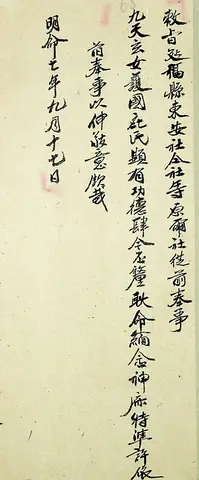 敕旨延福縣東安社全社等原爾社從前奉事
九天玄女護國庇民顯有功德肆今丕膺耿命緬念神庥特準許依
前奉事以伸敬意欽哉
明命七年九月十七日